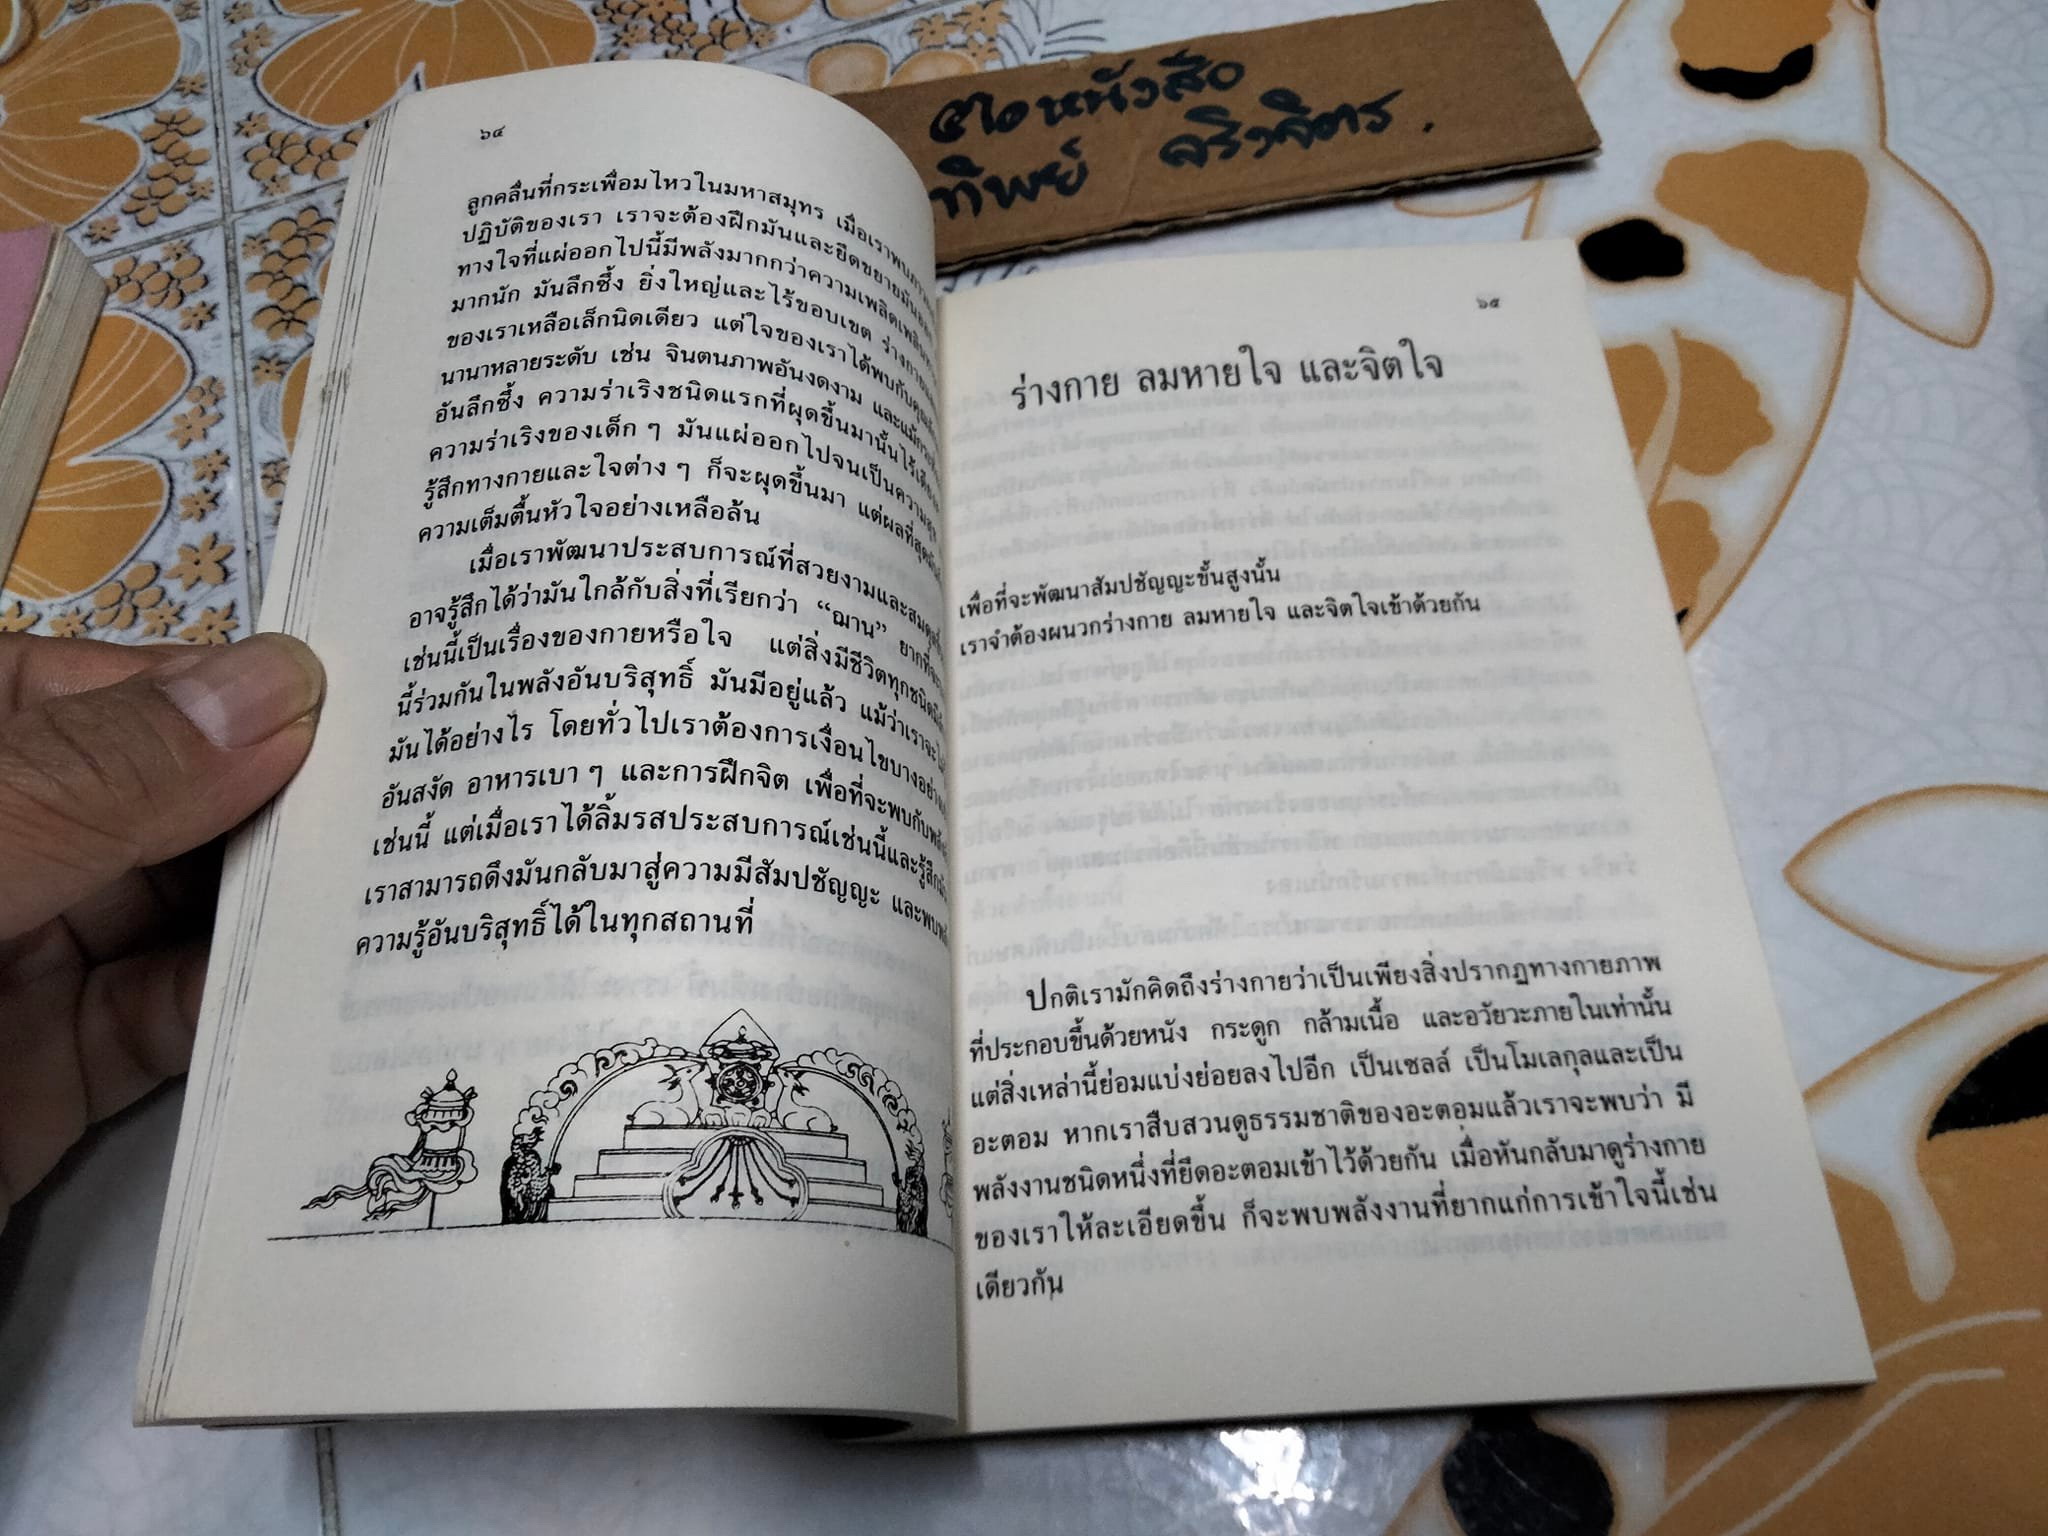 ทิพย์ จริงจิตร.
๖๔
ลูกคลื่นที่กระเพื่อมไหวในมหาสมุทร เมื่อเราพบ
ปฏิบัติของเรา เราจะต้องฝึกมันและยืดขยายมันออก
ทางใจที่แผ่ออกไปนี้มีพลังมากกว่าความเพลิดเพลิน
มากนัก มันลึกซึ้ง ยิ่งใหญ่และไร้ขอบเขต ร่างกาย
ของเราเหลือเล็กนิดเดียว แต่ใจของเราได้พบกับ
นานาหลายระดับ เช่น จินตนภาพอันงดงาม และแม้
อันลึกซึ้ง ความร่าเริงชนิดแรกที่ผุดขึ้นมานั้นไร้เดียงสา
ความร่าเริงของเด็ก ๆ มันแผ่ออกไปจนเป็นความสุข
รู้สึกทางกายและใจต่าง ๆ ก็จะผุดขึ้นมา แต่ผลที่สุด
ความเต็มตื้นหัวใจอย่างเหลือล้น
เมื่อเราพัฒนาประสบการณ์ที่สวยงามและ
อาจรู้สึกได้ว่ามันใกล้กับสิ่งที่เรียกว่า “ฌาน” ยากที่จะ
เช่นนี้เป็นเรื่องของกายหรือใจ แต่สิ่งมีชีวิตทุกชนิด
นี้ร่วมกันในพลังอันบริสุทธิ์ มันมีอยู่แล้ว แม้ว่าเราจะ
มันได้อย่างไร โดยทั่วไปเราต้องการเงื่อนไขบางอย่าง
อันสงัด อาหารเบา ๆ และการฝึกจิต เพื่อที่จะพบกับ
เช่นนี้ แต่เมื่อเราได้ลิ้มรสประสบการณ์เช่นนี้และรู้สึก
เราสามารถดึงมันกลับมาสู่ความมีสัมปชัญญะ และพบ
ความรู้อันบริสุทธิ์ได้ในทุกสถานที่
๖๕
ร่างกาย ลมหายใจ และจิตใจ
เพื่อที่จะพัฒนาสัมปชัญญะขั้นสูงนั้น
เราจำต้องผนวกร่างกาย ลมหายใจ และจิตใจเข้าด้วยกัน
ปกติเรามักคิดถึงร่างกายว่าเป็นเพียงสิ่งปรากฏทางกายภาพ
ที่ประกอบขึ้นด้วยหนัง กระดูก กล้ามเนื้อ และอวัยวะภายในเท่านั้น
แต่สิ่งเหล่านี้ย่อมแบ่งย่อยลงไปอีก เป็นเซลล์ เป็นโมเลกุลและเป็น
อะตอม หากเราสืบสวนดูธรรมชาติของอะตอมแล้วเราจะพบว่า มี
พลังงานชนิดหนึ่งที่ยึดอะตอมเข้าไว้ด้วยกัน เมื่อหันกลับมาดูร่างกาย
ของเราให้ละเอียดขึ้น ก็จะพบพลังงานที่ยากแก่การเข้าใจนี้เช่น
เดียวกัน